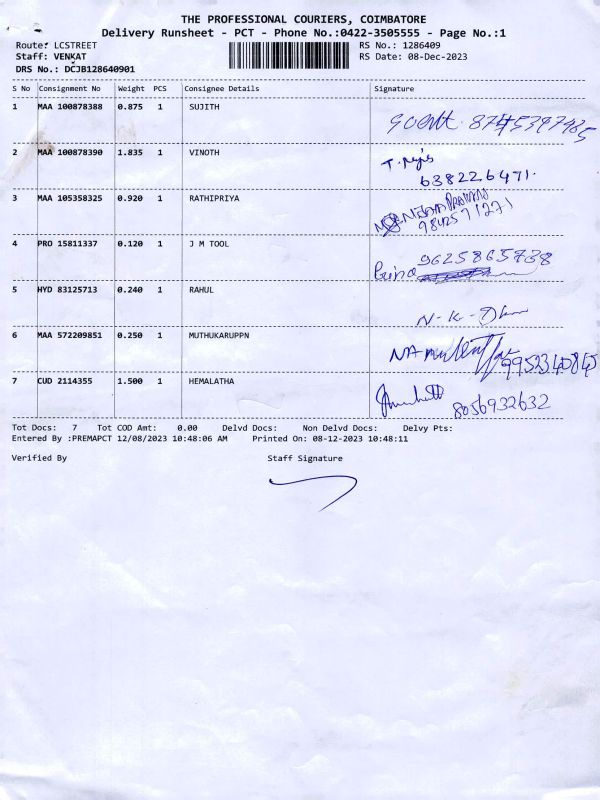 THE PROFESSIONAL COURIERS, COIMBATORE
Delivery Runsheet - PCT - Phone No.:0422-3505555 - Page No.:1
Route: LCSTREET RS No.: 1286409
Staff: VENKAT RS Date: 08-Dec-2023
DRS No.: DCJB128640901
S No Consignment No Weight PCS Consignee Details Signature
1 MAA 100878388 0.875 1 SUJITH
2 MAA 100878390 1.835 1 VINOTH
638226471.
3 MAA 105358325 0.920 1 RATHIPRIYA
9842571271
4 PRO 15811337 0.120 1 J M TOOL 9625865738
5 HYD 83125713 0.240 1 RAHUL
N-K-
6 MAA 572209851 0.250 1 MUTHUKARUPPN
9952340845
7 CUD 2114355 1.500 1 HEMALATHA
8056932632
Tot Docs: 7 Tot COD Amt: 0.00 Delvd Docs: Non Delvd Docs: Delvy Pts:
Entered By :PREMAPCT 12/08/2023 10:48:06 AM Printed On: 08-12-2023 10:48:11
Verified By Staff Signature